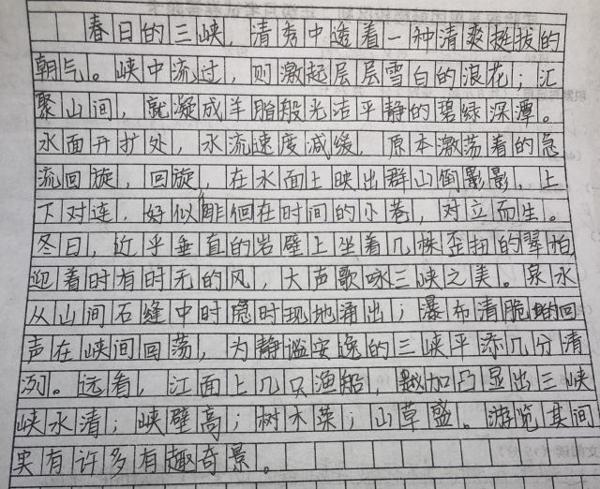 春日的三峡，清秀中透着一种清爽挺拔的
朝气。峡中流过，则激起层层雪白的浪花；汇
聚山间，就凝成羊脂般光洁平静的碧绿深潭。
水面开扩处，水流速度减缓，原本激荡着的急
流回旋，回旋，在水面上映出群山倒影影，上
下对连，好似徘徊在时间的小巷，对立而生。
冬日，近乎垂直的岩壁上坐着几株歪扭的翠柏，
迎着时有时无的风，大声歌咏三峡之美。泉水
从山间石缝中时隐时现地涌出；瀑布清脆的回
声在峡间回荡，为静谧安逸的三峡平添几分清
冽。远看，江面上几只渔船，加凸显出三峡
峡水清；峡壁高；树木荣；山草盛。游览其间
实有许多有趣奇景。